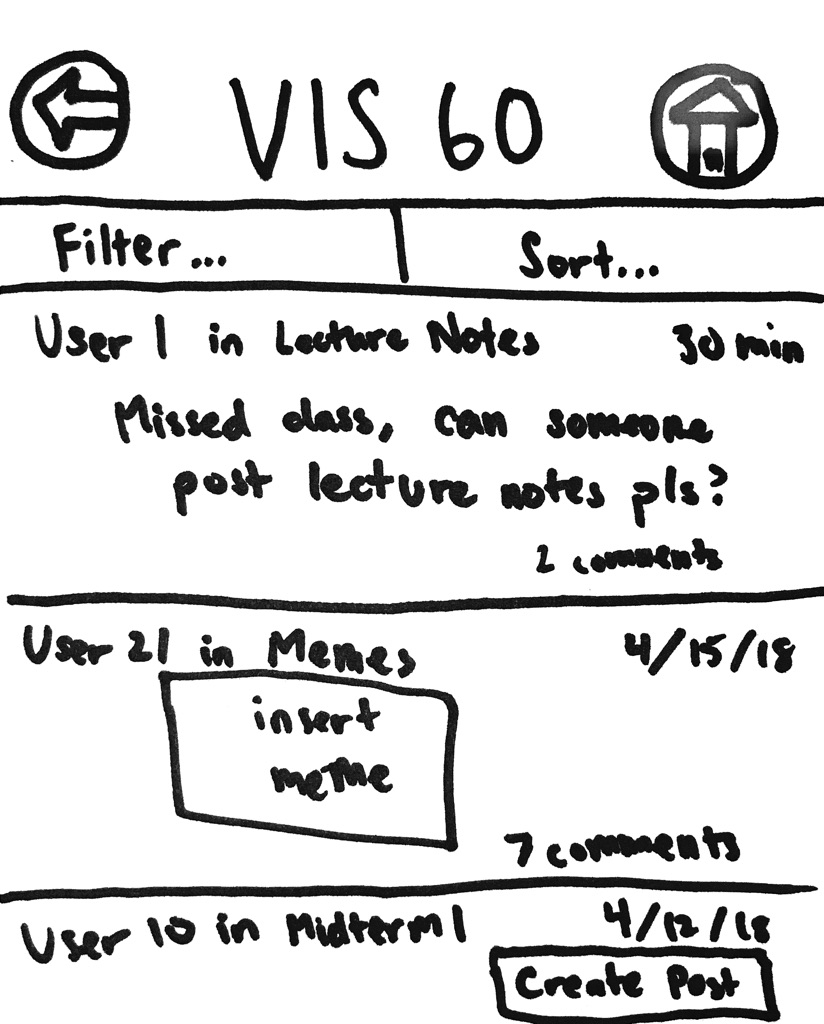 VIS 60
Filter... Sort...
User 1 in Lecture Notes 30 min
Missed class, can someone
post lecture notes pls?
2 comments
User 21 in Memes 4/15/18
insert
meme
7 comments
User 10 in Midterm 1 4/12/18
Create Post